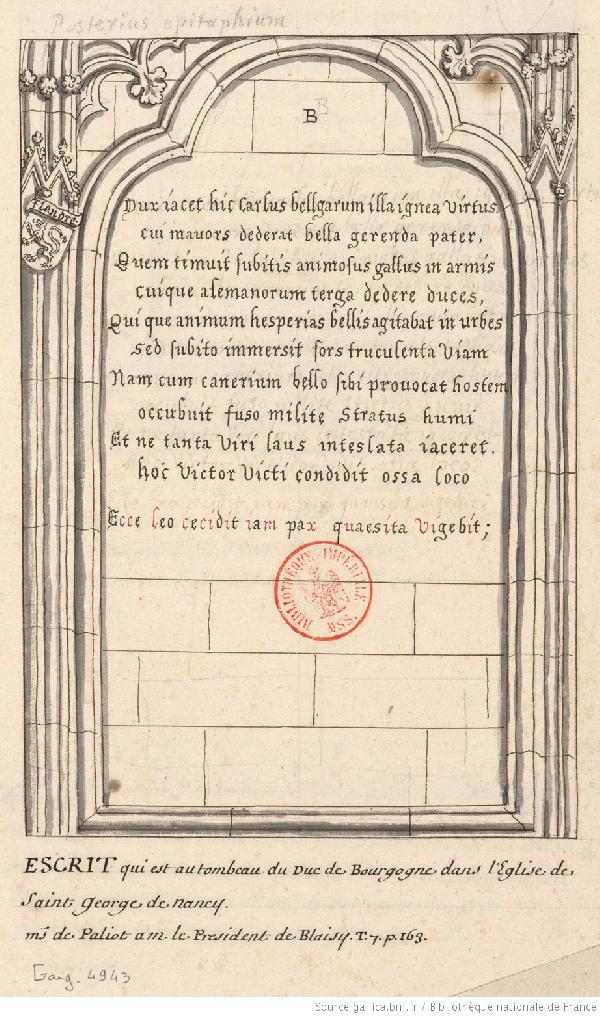 Posterius epitaphium
B
flandre
Dux iacet hic Carlus bellgarum illa ignea virtus
cui mavors dederat bella gerenda pater,
Quem timuit subitis animosus gallus in armis
cuique alemanorum terga dedere duces,
Qui que animum hesperias bellis agitabat in urbes
sed subito immersit sors truculenta Viam
Nam cum canerium bello sibi provocat hostem
occubuit fuso milite Stratus humi
Et ne tanta Viri laus intestata iaceret.
hoc Victor Victi condidit ossa loco
Ecce leo cecidit iam pax quaesita Vigebit;
BIBLIOTHEQUE IMPERIALE MSS.
ESCRIT qui est au tombeau du Duc de Bourgogne dans l'Eglise de
Saint George de nancy.
ms de Paliot a m. le President de Blaisy. T. 7. p. 163.
Gaig. 4943
Source gallica.bnf.fr / Bibliothèque nationale de France